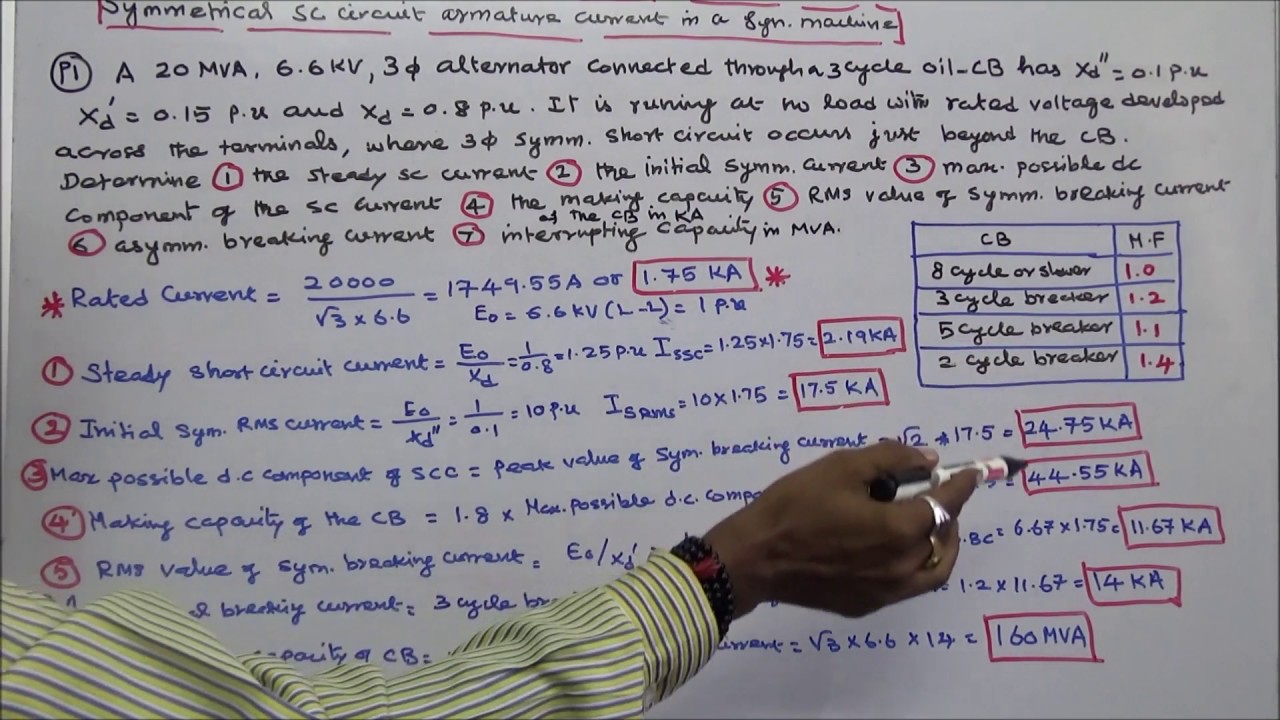 Symmetrical SC circuit armature current in a Syn. machine
P1 A 20 MVA, 6.6 KV, 3φ alternator connected through a 3 cycle oil-CB has Xd" = 0.1 p.u
Xd' = 0.15 p.u and Xd = 0.8 p.u. It is runing at no load with rated voltage developed
across the terminals, where 3φ symm. short circuit occurs just beyond the CB.
Determine ① the steady sc current ② the initial symm. current ③ max. possible dc
component of the sc current ④ the making capacity ⑤ RMS value of symm. breaking current
of the CB in KA
⑥ asymm. breaking current ⑦ interrupting capacity in MVA.
CB M.F
8 cycle or slower 1.0
3 cycle breaker 1.2
5 cycle breaker 1.1
2 cycle breaker 1.4
* Rated Current = 20000 / √3 x 6.6 = 1749.55A or 1.75 KA *
E0 = 6.6 kV (L-L) = 1 p.u
① Steady short circuit current = E0/Xd = 1/0.8 = 1.25 p.u ISSC = 1.25x1.75 = 2.19KA
② Initial Sym. RMS current = E0/Xd" = 1/0.1 = 10 p.u IS RMS = 10 x 1.75 = 17.5 KA
③ Max possible d.c component of SCC = peak value of sym. breaking current = √2 * 17.5 = 24.75 KA
④ Making capacity of the CB = 1.8 x Max. possible d.c. comp = 44.55 KA
⑤ RMS value of sym. breaking current = E0/Xd' .BC = 6.67 x 1.75 = 11.67 KA
breaking current = 3 cycle = 1.2 x 11.67 = 14 KA
capacity of CB = current = √3 x 6.6 x 14 = 160 MVA